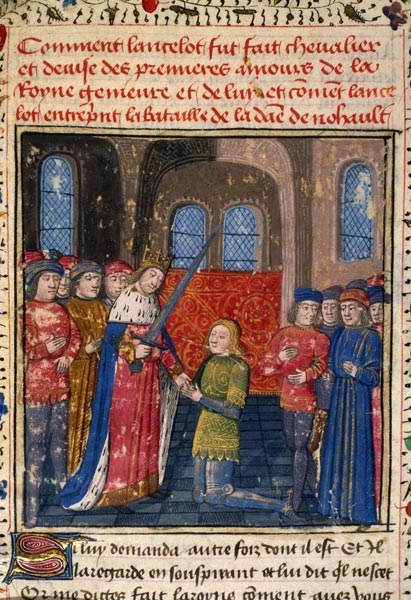 Comment lancelot fut fait cheualier
et deuise des premieres amours de la
Royne genieure et de luy et cõmēt lance
lot entreprnt la bataille de la dãe de nohault
Si luy demanda autre foiz dont il est Et Il
la regarde en souspirant et lui dit ql ne scet
Or me dictes fait la royne cõment auez vous